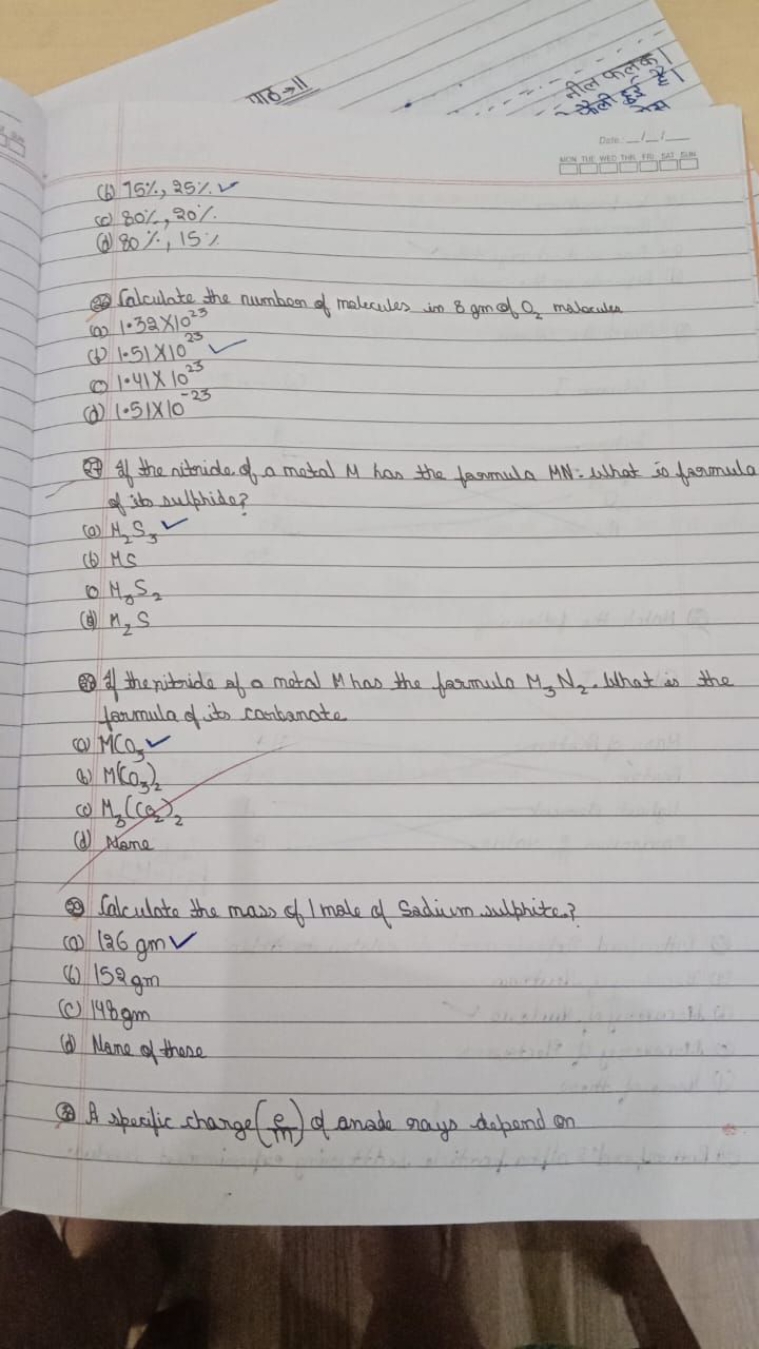 पाठ→11
नील फलक।
फैली हुई है।
Date: __/__/__
MON TUE WED THR FRI SAT SUN
(b) 75%, 25% ✓
(c) 80%, 20%
(d) 80%, 15%
Calculate the number of molecules in 8 gm of O₂ molecules
(a) 1.32X10²³
(b) 1.51X10²³ ✓
(c) 1.41X10²³
(d) 1.51X10⁻²³
27 If the nitride of a metal M has the formula MN. What is formula
of its sulphide?
(a) M₂S₃ ✓
(b) MS
(c) M₃S₂
(d) M₂S
28 If the nitride of a metal M has the formula M₃N₂. What is the
formula of its carbonate
(a) MCO₃ ✓
(b) M(CO₃)₂
(c) M₃(CO₂)₂
(d) None
Calculate the mass of 1 mole of Sodium sulphite?
(a) 126 gm ✓
(b) 152 gm
(c) 148 gm
(d) None of these
A specific charge (e/m) of anode rays depend on